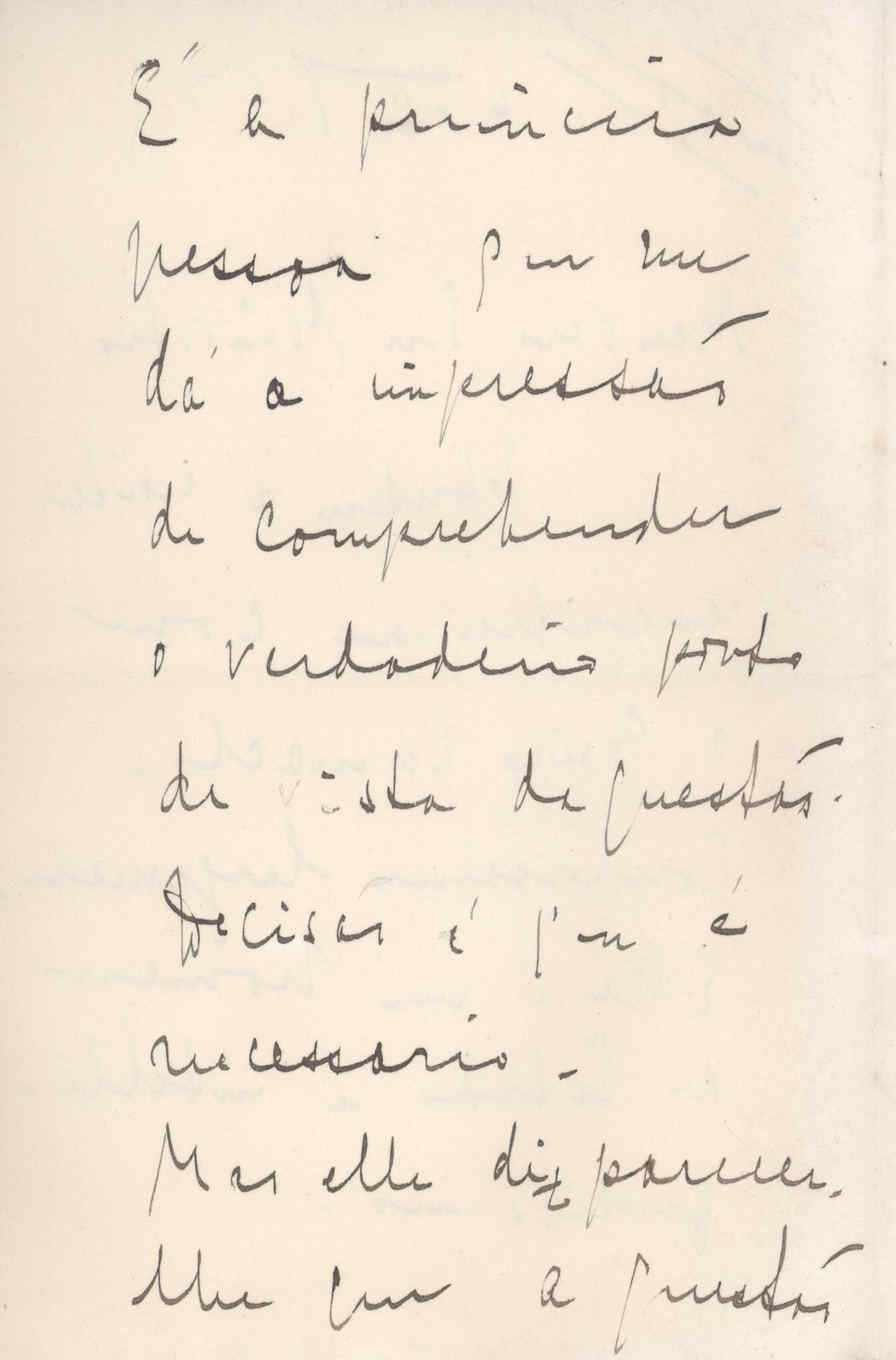 É a primeira
pessoa que me
dá a impressão
de comprehender
o verdadeiro ponto
de vista da questão.
Decisão é que é
necessario.
Mas elle diz parecer-
lhe que a questão